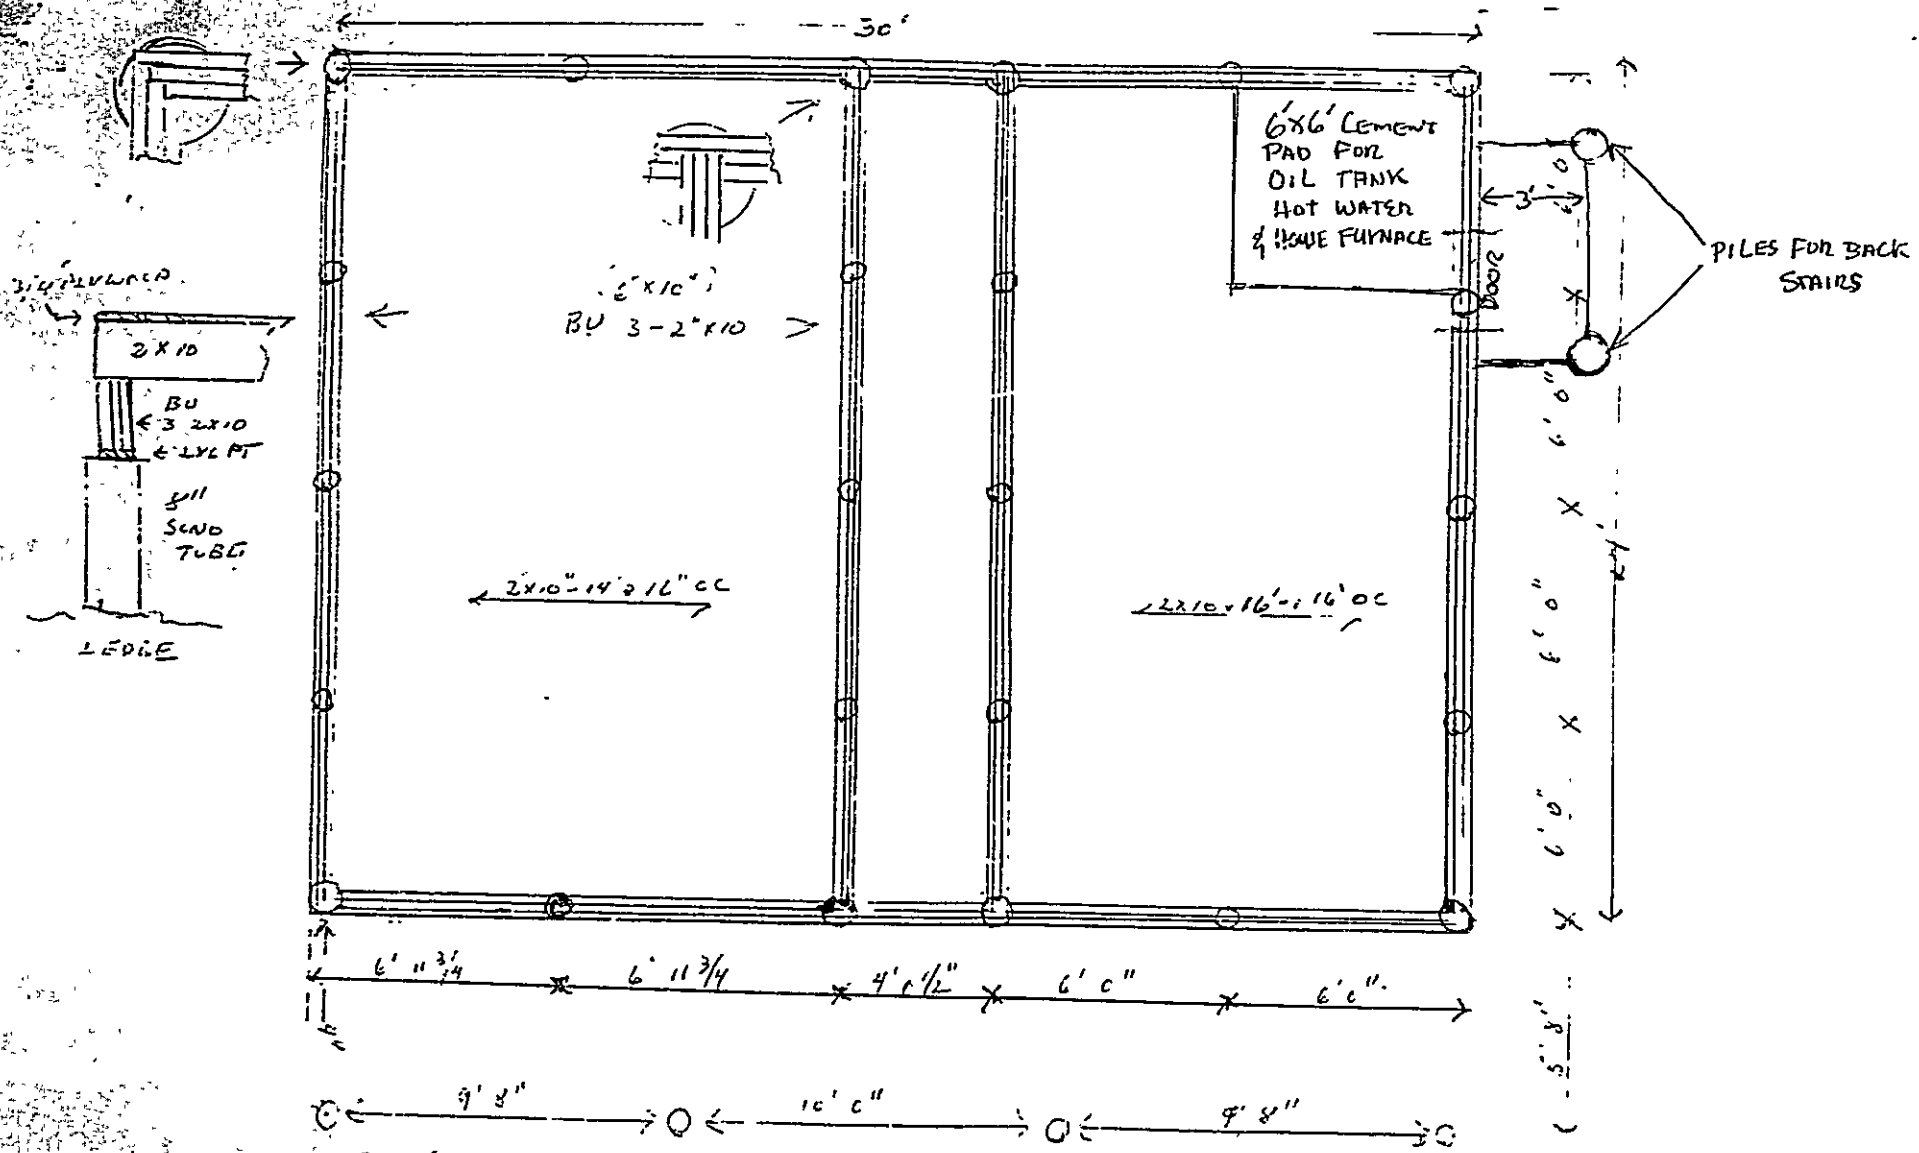 30'
6'X6' CEMENT
PAD FOR
OIL TANK
HOT WATER
& HOUE FURNACE
3'
DOOR
PILES FOR BACK
STAIRS
BU 3-2"X10
2 X 10
BU
3 2X10
SONO
TUBE
LEDGE
2X10"-14' 16" OC
2X10 16' 16' OC
6'0"
6'0"
6'0"
24'
6' 11 3/4
6' 11 3/4
4' 0 1/2"
6' 0"
6' 0"
5' 8"
9' 8"
10' 0"
9' 8"